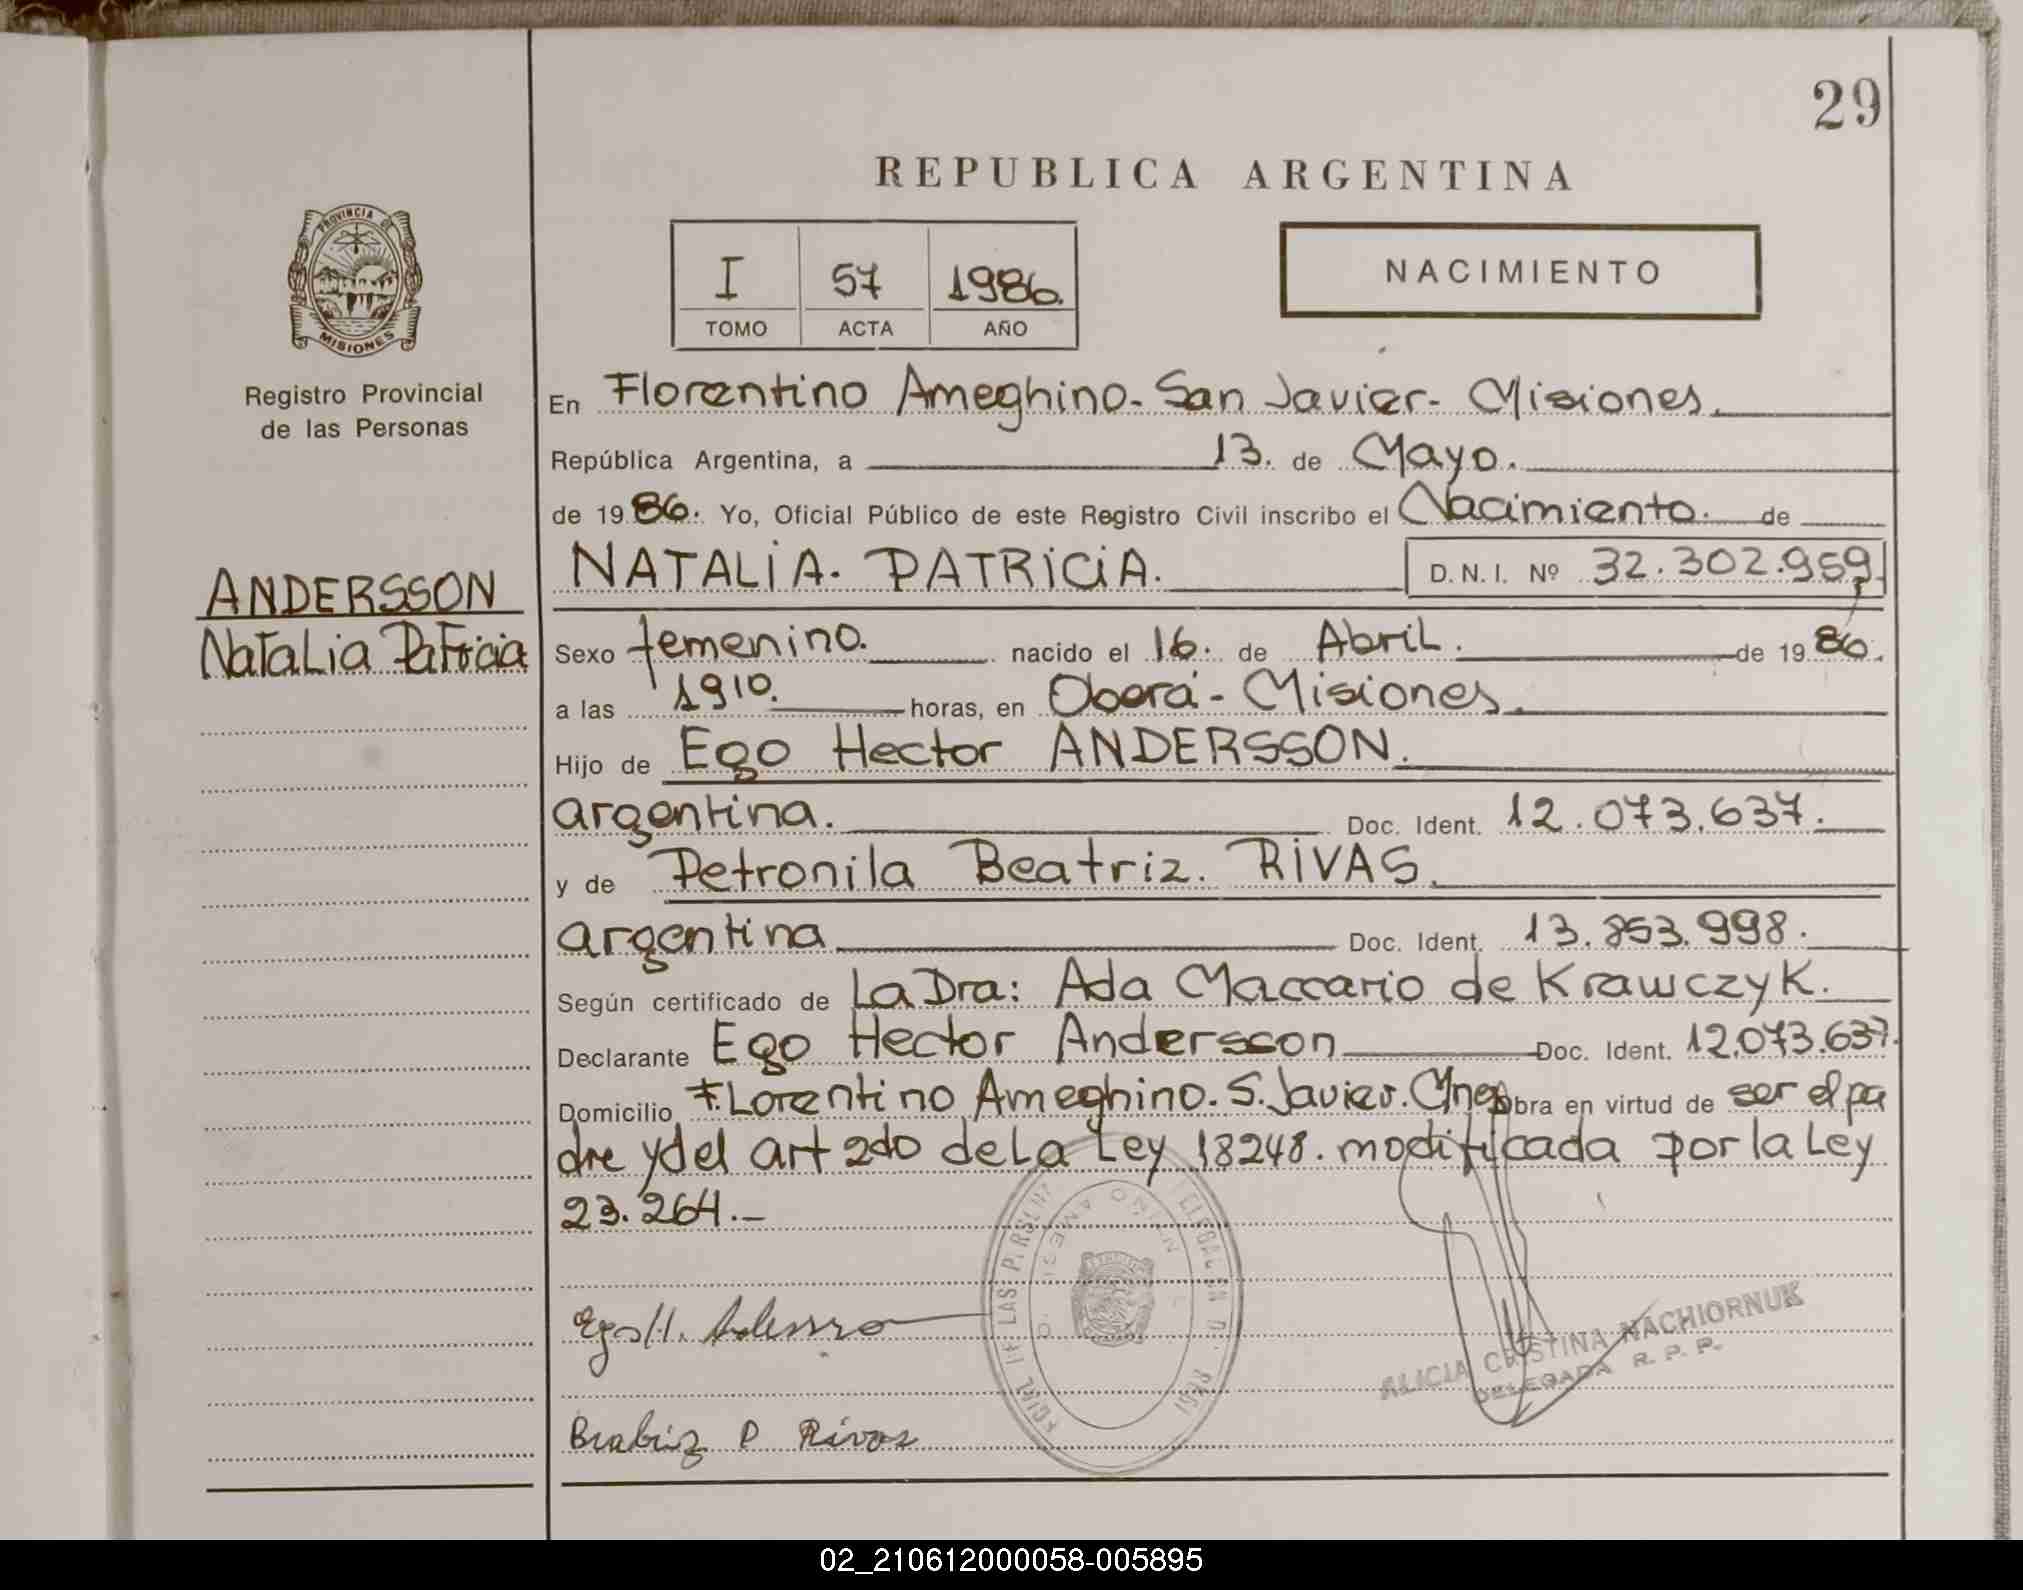 29
REPUBLICA ARGENTINA
PROVINCIA DE
MISIONES
Registro Provincial
de las Personas
I 57 1986.
TOMO ACTA AÑO
NACIMIENTO
En Florentino Ameghino - San Javier - Misiones.
República Argentina, a 13. de Mayo.
de 1986. Yo, Oficial Público de este Registro Civil inscribo el Nacimiento. de
ANDERSSON
Natalia Patricia
NATALIA. PATRICIA. D.N.I. Nº 32.302.959
Sexo femenino. nacido el 16. de Abril. de 1986.
a las 1910. horas, en Oberá - Misiones.
Hijo de Ego Hector ANDERSSON.
argentina. Doc. Ident. 12.073.637.
y de Petronila Beatriz. RIVAS.
argentina Doc. Ident. 13.853.998.
Según certificado de La Dra: Ada Maccario de Krawczyk.
Declarante Ego Hector Andersson Doc. Ident. 12.073.637.
Domicilio Florentino Ameghino. S. Javier. Mnes Obra en virtud de ser el pa
dre y del art 2do de La Ley 18248. modificada por la Ley
23.264.-
Ego H. Andersson
ALICIA CRISTINA NACHIORNUK
DELEGADA R. P. P.
Beatriz P Rivas
02_210612000058-005895